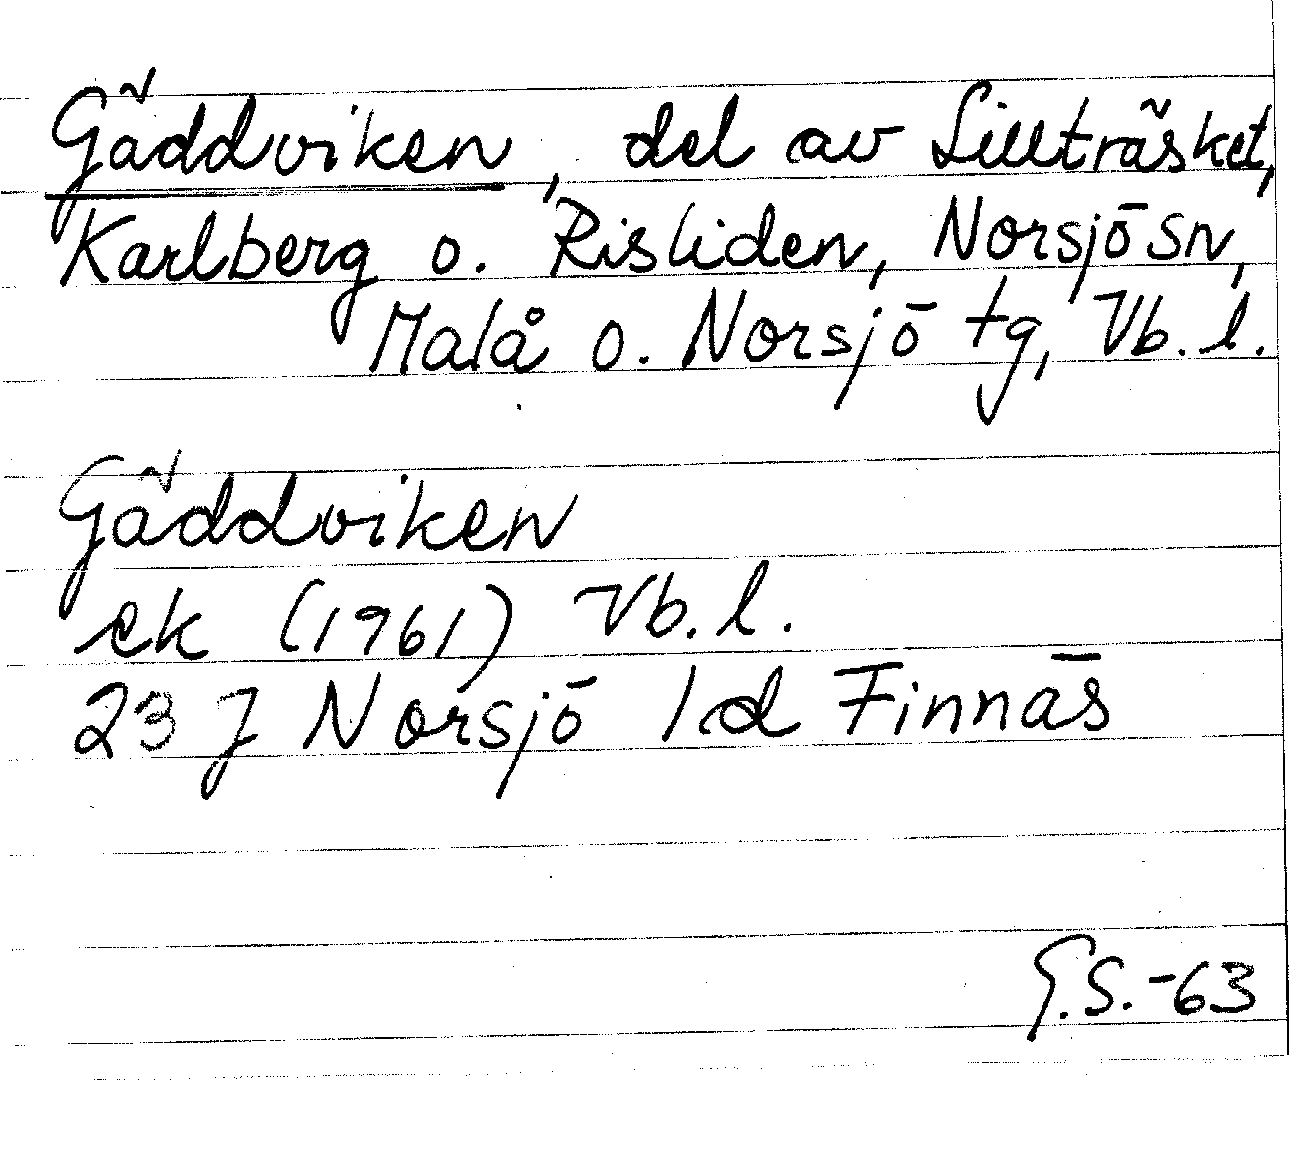 Gäddviken, del av Lillträsket,
Karlberg o. Risliden, Norsjö sn,
Malå o. Norsjö tg, Vb. l.
Gäddviken
ek (1961) Vb. l.
23 J Norsjö 1 d Finnäs
G.S.-63